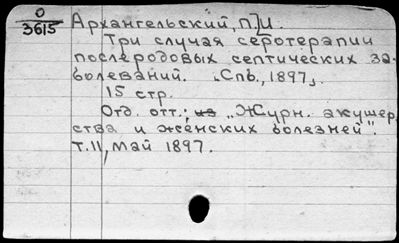 О
3615
Архангельский, П.И.
Три случая серотерапии
послеродовых септических за-
болеваний. „Спб., 1897„.
15 стр.
Отд. отт.; из „Журн. акушер-
ства и женских болезней".
т. 11, май 1897.